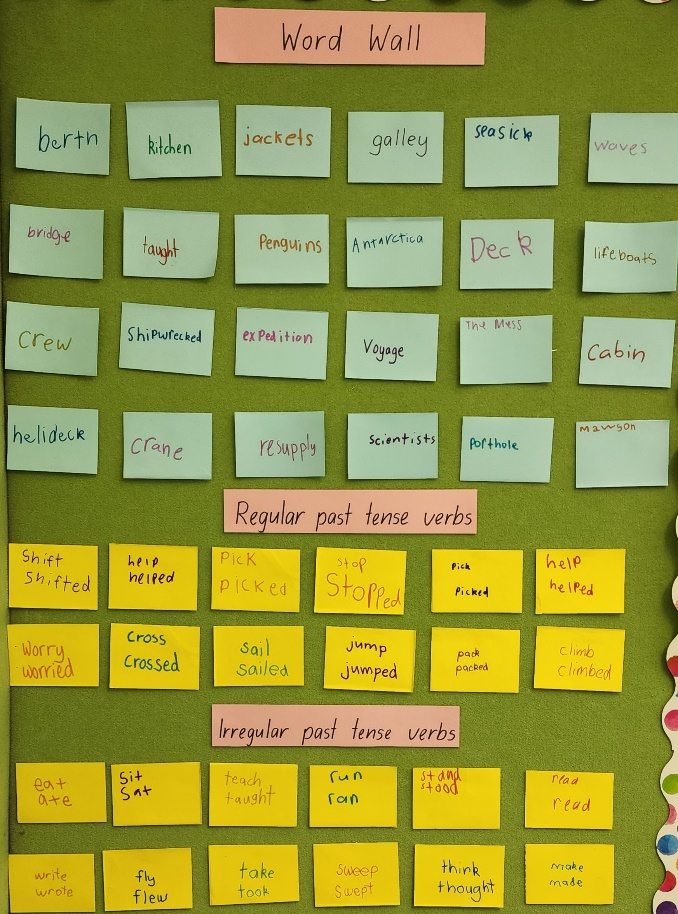 Word Wall
berth
kitchen
jackets
galley
seasick
waves
bridge
taught
Penguins
Antarctica
Deck
lifeboats
crew
Shipwrecked
exPedition
Voyage
The Mess
Cabin
helideck
crane
resupply
scientists
Porthole
Mawson
Regular past tense verbs
Shift
Shifted
help
helped
Pick
picked
stop
Stopped
Pick
Picked
help
helped
Worry
worried
cross
crossed
sail
sailed
jump
jumped
pack
packed
climb
climbed
Irregular past tense verbs
eat
ate
Sit
Sat
teach
taught
run
ran
stand
stood
read
read
write
wrote
fly
flew
take
took
sweep
swept
think
thought
make
made